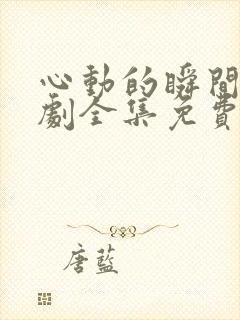 心動的瞬間
劇全集免費
唐藍